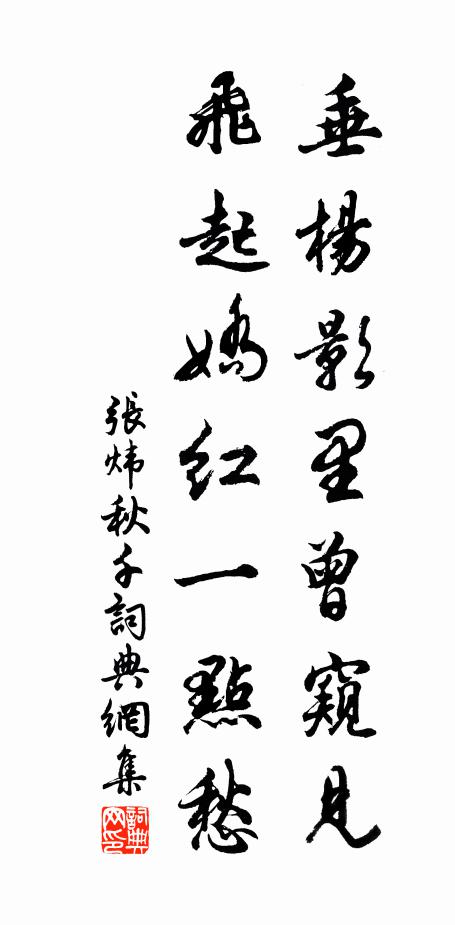 垂楊影里曾窺見
飛起嬌紅一點愁
張炜秋千詞典網集
詞典网印